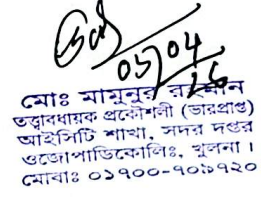 05/04/26
মোঃ মামুনুর রহমান
তত্ত্বাবধায়ক প্রকৌশলী (ভারপ্রাপ্ত)
আইসিটি শাখা, সদর দপ্তর
ওজোপাডিকোলিঃ, খুলনা।
মোবাঃ ০১৭০০-৭০৯৭২০